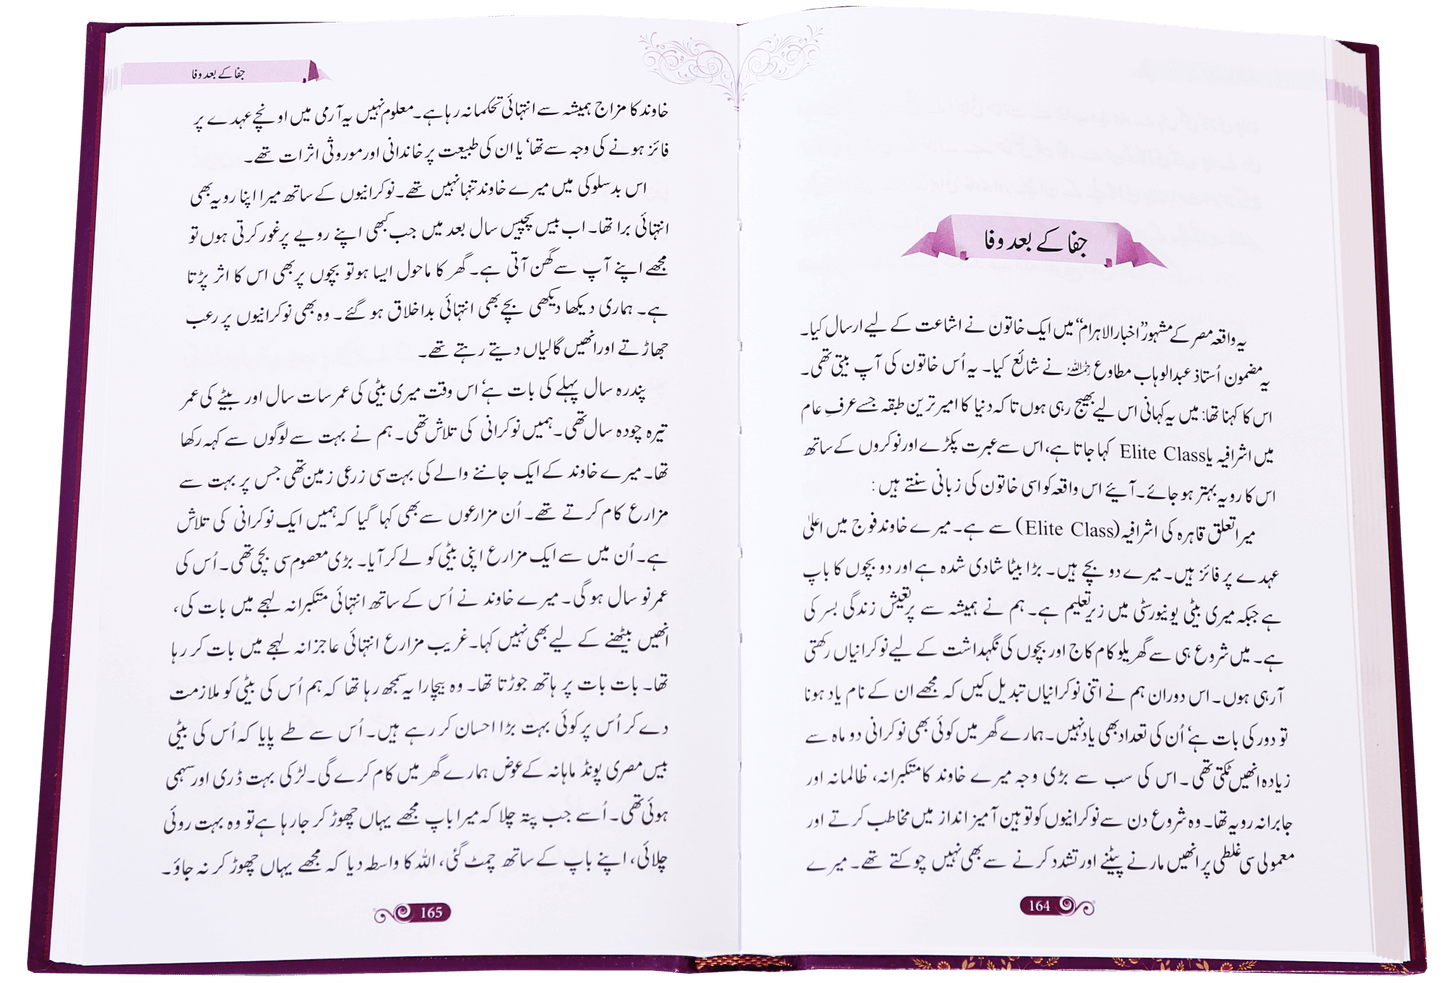 جفا کے بعد وفا
یہ واقعہ مصر کے مشہور ’’اخبار الاہرام‘‘ میں ایک خاتون نے اشاعت کے لیے ارسال کیا۔
یہ مضمون اُستاذ عبدالوہاب مطاوع رحمہ اللہ نے شائع کیا۔ یہ اُس خاتون کی آپ بیتی تھی۔
اس کا کہنا تھا: میں یہ کہانی اس لیے بھیج رہی ہوں تاکہ دنیا کا امیر ترین طبقہ جسے عرفِ عام
میں اشرافیہ یا Elite Class کہا جاتا ہے، اس سے عبرت پکڑے اور نوکروں کے ساتھ
اس کا رویہ بہتر ہو جائے۔ آیئے اس واقعہ کو اسی خاتون کی زبانی سنتے ہیں:
میرا تعلق قاہرہ کی اشرافیہ (Elite Class) سے ہے۔ میرے خاوند فوج میں اعلیٰ
عہدے پر فائز ہیں۔ میرے دو بچے ہیں۔ بڑا بیٹا شادی شدہ ہے اور دو بچوں کا باپ
ہے جبکہ میری بیٹی یونیورسٹی میں زیر تعلیم ہے۔ ہم نے ہمیشہ سے پرتعیش زندگی بسر کی
ہے۔ میں شروع ہی سے گھریلو کام کاج اور بچوں کی نگہداشت کے لیے نوکرانیاں رکھتی
آ رہی ہوں۔ اس دوران ہم نے اتنی نوکرانیاں تبدیل کیں کہ مجھے ان کے نام یاد ہونا
تو دور کی بات ہے‘ اُن کی تعداد بھی یاد نہیں۔ ہمارے گھر میں کوئی بھی نوکرانی دو ماہ سے
زیادہ انھیں ٹکتی تھی۔ اس کی سب سے بڑی وجہ میرے خاوند کا متکبرانہ، ظالمانہ اور
جابرانہ رویہ تھا۔ وہ شروع دن سے نوکرانیوں کو توہین آمیز انداز میں مخاطب کرتے اور
معمولی سی غلطی پر انھیں مارنے پیٹنے اور تشدد کرنے سے بھی نہیں چوکتے تھے۔ میرے
164
جفا کے بعد وفا
خاوند کا مزاج ہمیشہ سے انتہائی تحکمانہ رہا ہے۔ معلوم نہیں یہ آرمی میں اونچے عہدے پر
فائز ہونے کی وجہ سے تھا‘ یا ان کی طبیعت پر خاندانی اور موروثی اثرات تھے۔
اس بدسلوکی میں میرے خاوند تنہا نہیں تھے۔ نوکرانیوں کے ساتھ میرا اپنا رویہ بھی
انتہائی برا تھا۔ اب بیس پچیس سال بعد میں جب کبھی اپنے رویے پر غور کرتی ہوں تو
مجھے اپنے آپ سے گھن آتی ہے۔ گھر کا ماحول ایسا ہو تو بچوں پر بھی اس کا اثر پڑتا
ہے۔ ہماری دیکھا دیکھی بچے بھی انتہائی بداخلاق ہو گئے۔ وہ بھی نوکرانیوں پر رعب
جھاڑتے اور انھیں گالیاں دیتے رہتے تھے۔
پندرہ سال پہلے کی بات ہے‘ اس وقت میری بیٹی کی عمر سات سال اور بیٹے کی عمر
تیرہ چودہ سال تھی۔ ہمیں نوکرانی کی تلاش تھی۔ ہم نے بہت سے لوگوں سے کہہ رکھا
تھا۔ میرے خاوند کے ایک جاننے والے کی بہت سی زرعی زمین تھی جس پر بہت سے
مزارع کام کرتے تھے۔ اُن مزارعوں سے بھی کہا گیا کہ ہمیں ایک نوکرانی کی تلاش
ہے۔ اُن میں سے ایک مزارع اپنی بیٹی کو لے کر آیا۔ بڑی معصوم سی بچی تھی۔ اُس کی
عمر نو سال ہو گی۔ میرے خاوند نے اُس کے ساتھ انتہائی متکبرانہ لہجے میں بات کی،
انھیں بیٹھنے کے لیے بھی نہیں کہا۔ غریب مزارع انتہائی عاجزانہ لہجے میں بات کر رہا
تھا۔ بات بات پر ہاتھ جوڑتا تھا۔ وہ بیچارا یہ سمجھ رہا تھا کہ ہم اُس کی بیٹی کو ملازمت
دے کر اُس پر کوئی بہت بڑا احسان کر رہے ہیں۔ اُس سے طے پایا کہ اُس کی بیٹی
بیس مصری پونڈ ماہانہ کے عوض ہمارے گھر میں کام کرے گی۔ لڑکی بہت ڈری اور سہمی
ہوئی تھی۔ اُسے جب پتہ چلا کہ میرا باپ مجھے یہاں چھوڑ کر جا رہا ہے تو وہ بہت روئی
چلائی، اپنے باپ کے ساتھ چمٹ گئی، اللہ کا واسطہ دیا کہ مجھے یہاں چھوڑ کر نہ جاؤ۔
165